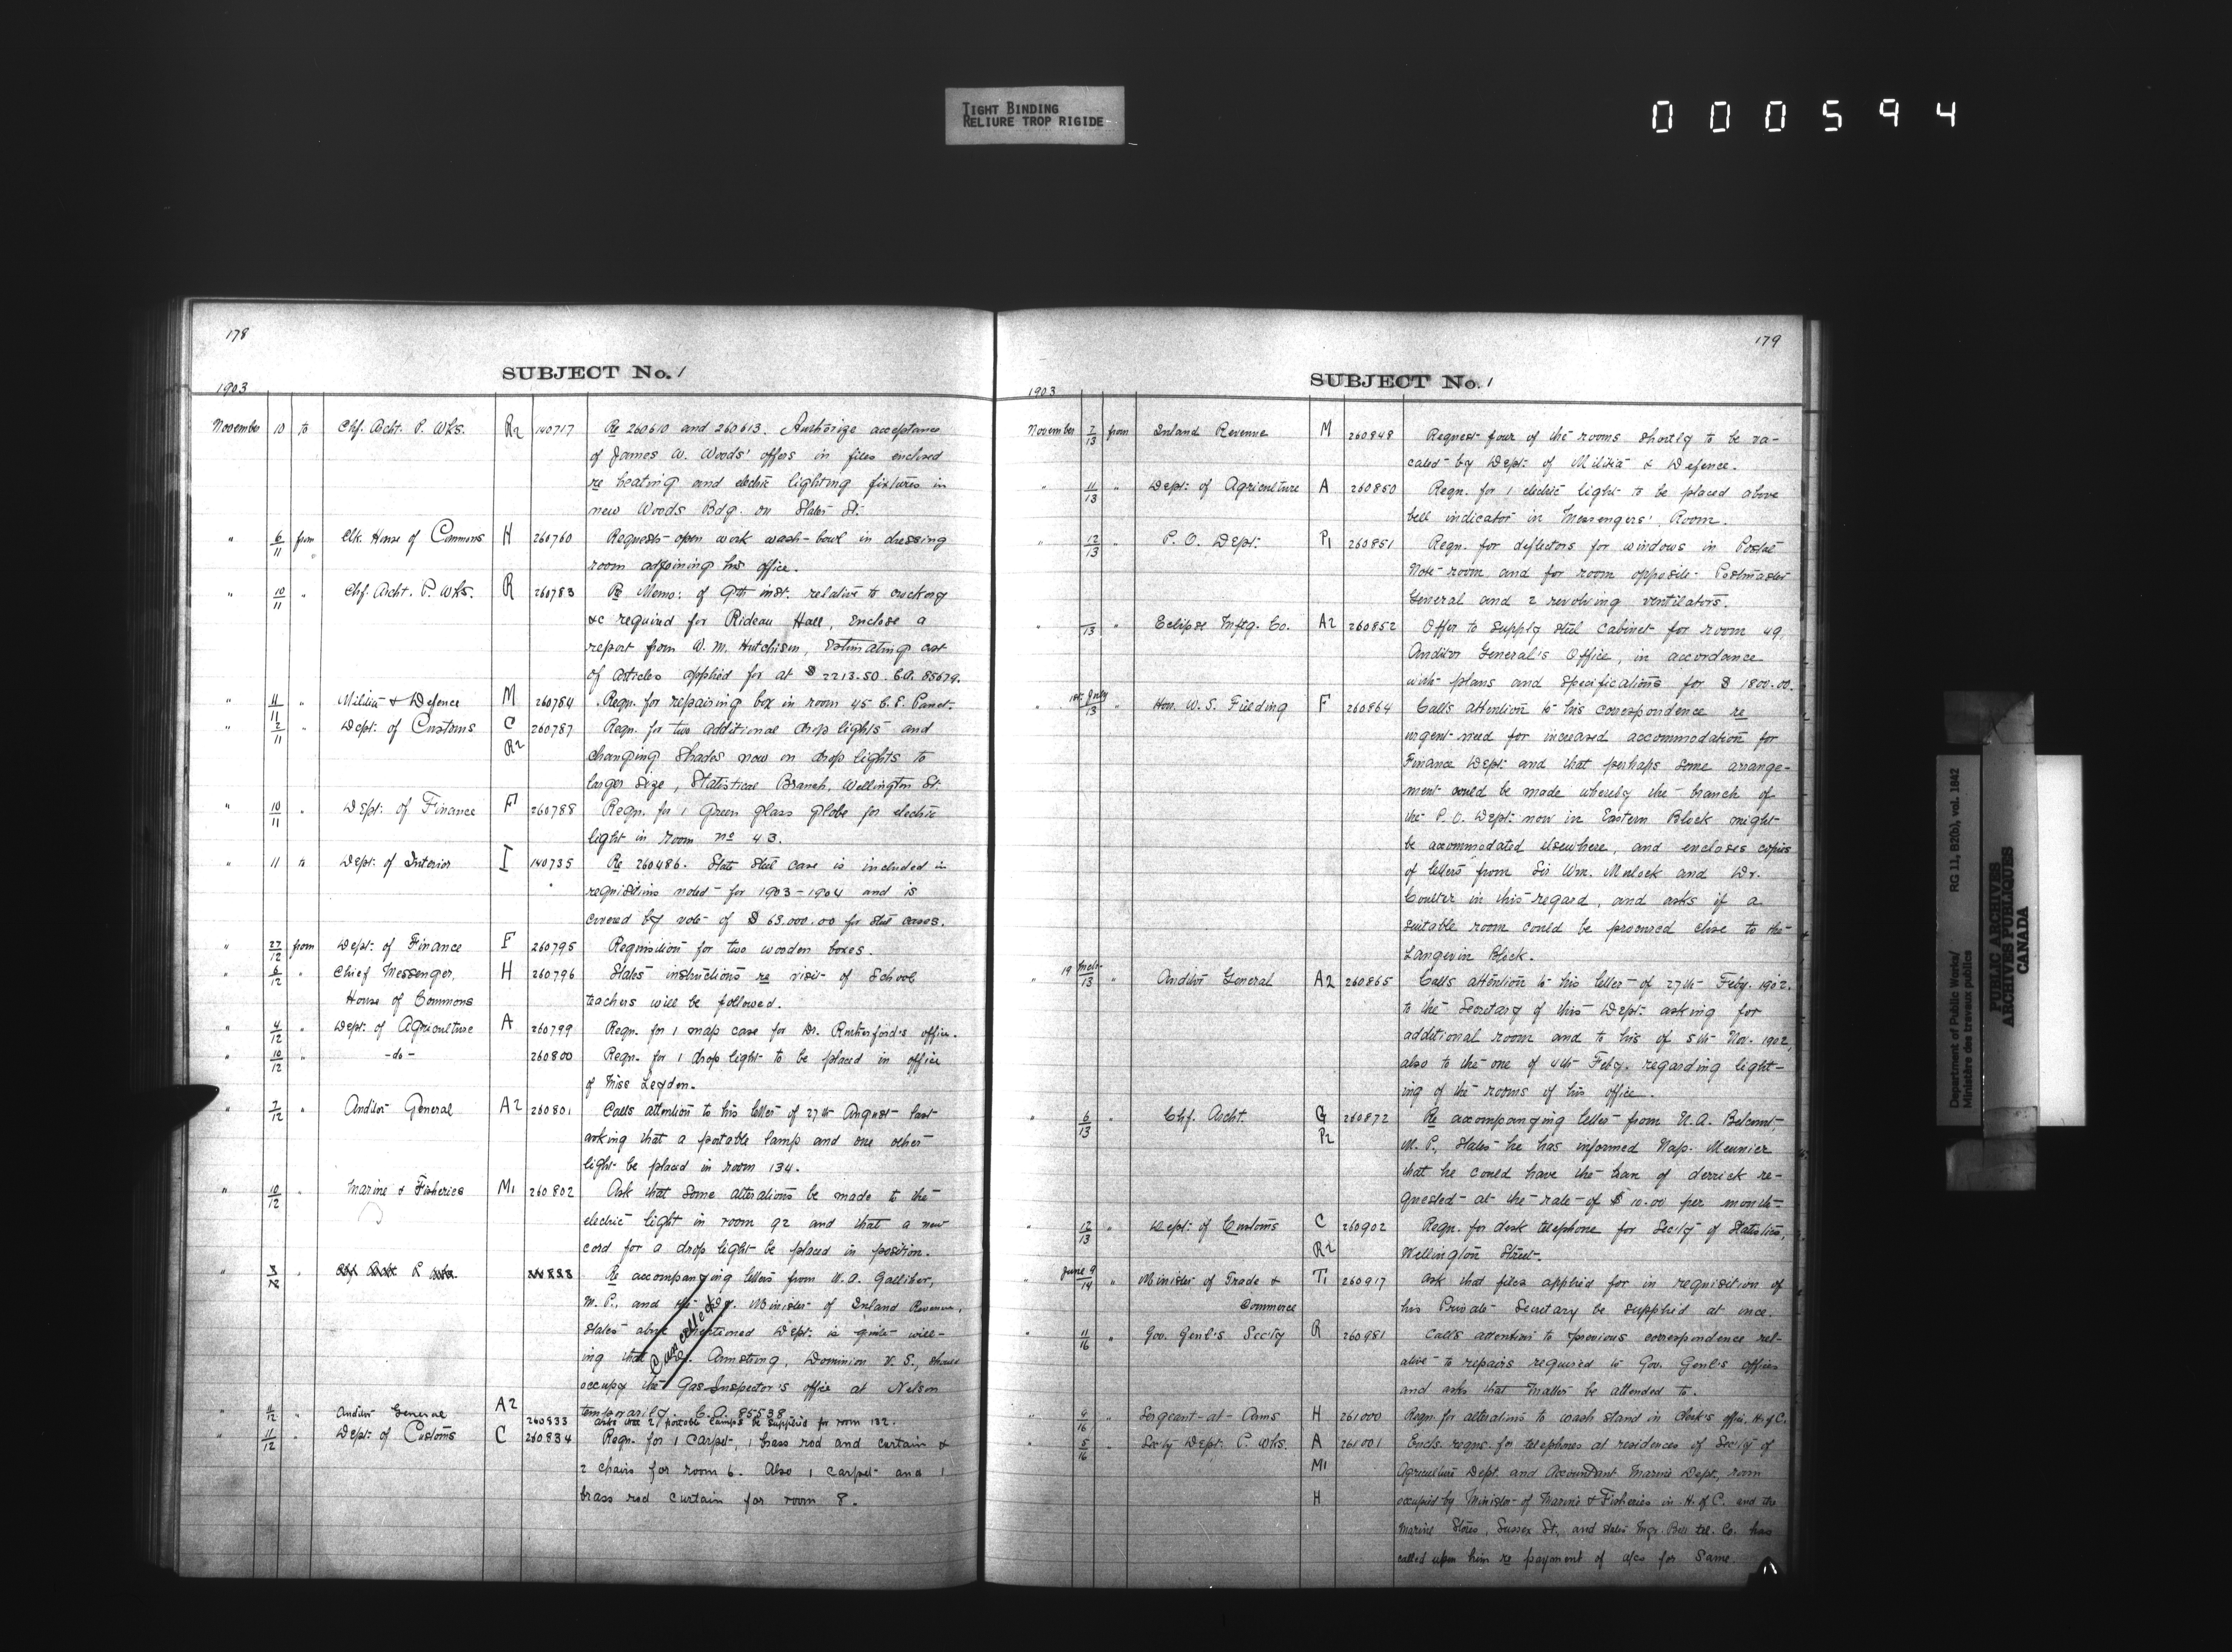 TIGHT BINDING
RELIURE TROP RIGIDE
000594
178
SUBJECT No. 1
1903
November 10 to Chf. Archt. P. Wks. R2 140717 Re 260610 and 260613. Authorize acceptance
of James W. Woods' offers in files enclosed
re heating and electric lighting fixtures in
new Woods Bdg. on Slater St.
" 6/11 from Clk. House of Commons H 260760 Requests open work wash-bowl in dressing
room adjoining his office.
" 10/11 " Chf. Archt. P. Wks. R 260783 Re Memo: of 9th inst. relative to crockery
&c required for Rideau Hall, enclose a
report from W. M. Hutchison, estimating cost
of articles applied for at $2213.50. C.A. 85679.
" 11/11 " Militia & Defence M 260784 Reqn. for repairing box in room 45
" 2/11 " Dept. of Customs C 260787 Reqn. for two additional drop lights and
R2 changing shades now on drop lights to
larger size, Statistical Branch, Wellington St.
" 10/11 " Dept. of Finance F 260788 Reqn. for 1 green glass globe for electric
light in room no 43.
" 11 to Dept. of Interior I 140735 Re 260486. State steel case is included in
requisitions noted for 1903-1904 and is
covered by vote of $63.000.00 for steel cases.
" 27/12 from Dept. of Finance F 260795 Requisition for two wooden boxes.
" 6/12 " Chief Messenger, H 260796 States instructions re visit of School
House of Commons teachers will be followed.
" 4/12 " Dept. of Agriculture A 260799 Reqn. for 1 map case for Dr. Rutherford's office.
" 10/12 " -do- 260800 Reqn. for 1 drop light to be placed in office
of Miss Leyden.
" 7/12 " Auditor General A2 260801 Calls attention to his letter of 27th August last
asking that a portable lamp and one other
light be placed in room 134.
" 10/12 " Marine & Fisheries M1 260802 Ask that some alterations be made to the
electric light in room 92 and that a new
cord for a drop light be placed in position.
" 3/12 " Chf Archt P Wks. Re accompanying letters from W. A. Galliher,
M. P., and the Dy. Minister of Inland Revenue,
states above mentioned Dept. is quite will-
ing that Dr. Armstrong, Dominion V. S., should
occupy the Gas Inspector's office at Nelson
temporarily. C.A. 85538
Cancelled
" 11/12 " Auditor General A2 260833 Asks that 2 portable lamps be supplied for room 132.
" 11/12 " Dept. of Customs C 260834 Reqn. for 1 carpet, 1 brass rod and curtain &
2 chairs for room 6. Also 1 carpet and 1
brass rod curtain for room 8.
179
SUBJECT No. 1
1903
November 7/13 from Inland Revenue M 260848 Request four of the rooms shortly to be va-
cated by Dept. of Militia & Defence.
" 11/13 " Dept. of Agriculture A 260850 Reqn. for 1 electric light to be placed above
bell indicator in Messengers' Room.
" 12/13 " P. O. Dept. P1 260851 Reqn. for deflectors for windows in Postal
Note room and for room opposite Postmaster
General and 2 revolving ventilators.
" /13 " Eclipse Mnftg. Co. A2 260852 Offer to supply steel cabinet for room 49,
Auditor General's Office, in accordance
with plans and specifications for $1800.00.
" 1st July/13 " Hon. W. S. Fielding F 260864 Calls attention to his correspondence re
urgent need for increased accommodation for
Finance Dept. and that perhaps some arrange-
ment could be made whereby the branch of
the P. O. Dept. now in Eastern Block might
be accommodated elsewhere, and encloses copies
of letters from Sir Wm. Mulock and Dr.
Coulter in this regard, and asks if a
suitable room could be procured close to the
Langevin Block.
" 19 Mch/13 " Auditor General A2 260865 Calls attention to his letter of 27th Feby. 1902.
to the Secretary of this Dept. asking for
additional room and to his of 5th Nov. 1902,
also to the one of 4th Feby. regarding light-
ing of the rooms of his office.
" 6/13 " Chf. Archt. G 260872 Re accompanying letter from N. A. Belcourt
P2 M. P., states he has informed Nap. Meunier
that he could have the loan of derrick re-
quested at the rate of $10.00 per month.
" 12/13 " Dept. of Customs C 260902 Reqn. for desk telephone for Sec'ty of Statistics,
R2 Wellington Street.
" June 9/14 " Minister of Trade & T1 260917 Ask that files applied for in requisition of
Commerce his Private Secretary be supplied at once.
" 11/16 " Gov. Genl's Secty R 260981 Calls attention to previous correspondence rel-
ative to repairs required to Gov. Genl's offices
and asks that matter be attended to.
" 9/16 " Sergeant-at-Arms H 261000 Reqn. for alterations to wash stand in Clerk's office, H. of C.
" 5/16 " Secty Dept. P. Wks. A 261001 Encls. reqns. for telephones at residences of Secty of
M1 Agriculture Dept. and Accountant Marine Dept., room
H occupied by Minister of Marine & Fisheries in H. of C. and the
Marine Stores, Sussex St., and states Mgr. Bell tel. Co. has
called upon him re payment of a/cs for same.
Department of Public Works/
Ministère des travaux publics
RG 11, B2(b), vol. 1842
PUBLIC ARCHIVES
ARCHIVES PUBLIQUES
CANADA